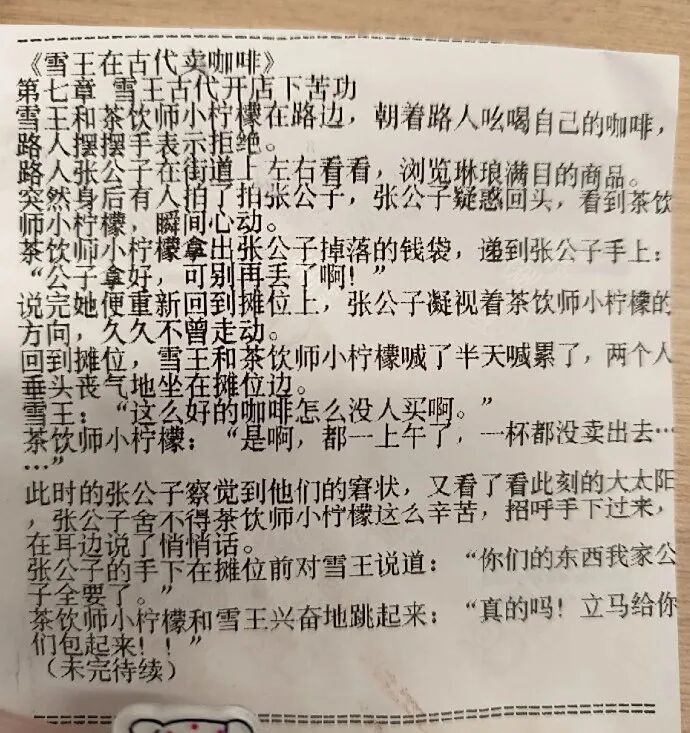 《雪王在古代卖咖啡》
第七章 雪王古代开店下苦功
雪王和茶饮师小柠檬在路边，朝着路人吆喝自己的咖啡，
路人摆摆手表示拒绝。
路人张公子在街道上左右看看，浏览琳琅满目的商品。
突然身后有人拍了拍张公子，张公子疑惑回头，看到茶饮
师小柠檬，瞬间心动。
茶饮师小柠檬拿出张公子掉落的钱袋，递到张公子手上：
“公子拿好，可别再丢了啊！”
说完她便重新回到摊位上，张公子凝视着茶饮师小柠檬的
方向，久久不曾走动。
回到摊位，雪王和茶饮师小柠檬喊了半天喊累了，两个人
垂头丧气地坐在摊位边。
雪王：“这么好的咖啡怎么没人买啊。”
茶饮师小柠檬：“是啊，都一上午了，一杯都没卖出去…
…”
此时的张公子察觉到他们的窘状，又看了看此刻的大太阳
，张公子舍不得茶饮师小柠檬这么辛苦，招呼手下过来，
在耳边说了悄悄话。
张公子的手下在摊位前对雪王说道：“你们的东西我家公
子全要了。”
茶饮师小柠檬和雪王兴奋地跳起来：“真的吗！立马给你
们包起来！！”
（未完待续）